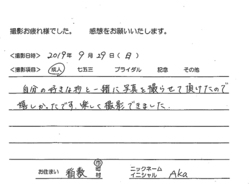 撮影お疲れ様でした。 感想をお願いいたします。
<撮影日時> 2019年 9月 29日 (日)
<撮影項目> 成人 七五三 ブライダル 記念 その他
自分の好きな物と一緒に写真を撮らせて頂けたので
嬉しかったです。楽しく撮影できました。
お住まい 稲敷 市 町 村 ニックネーム イニシャル Aka